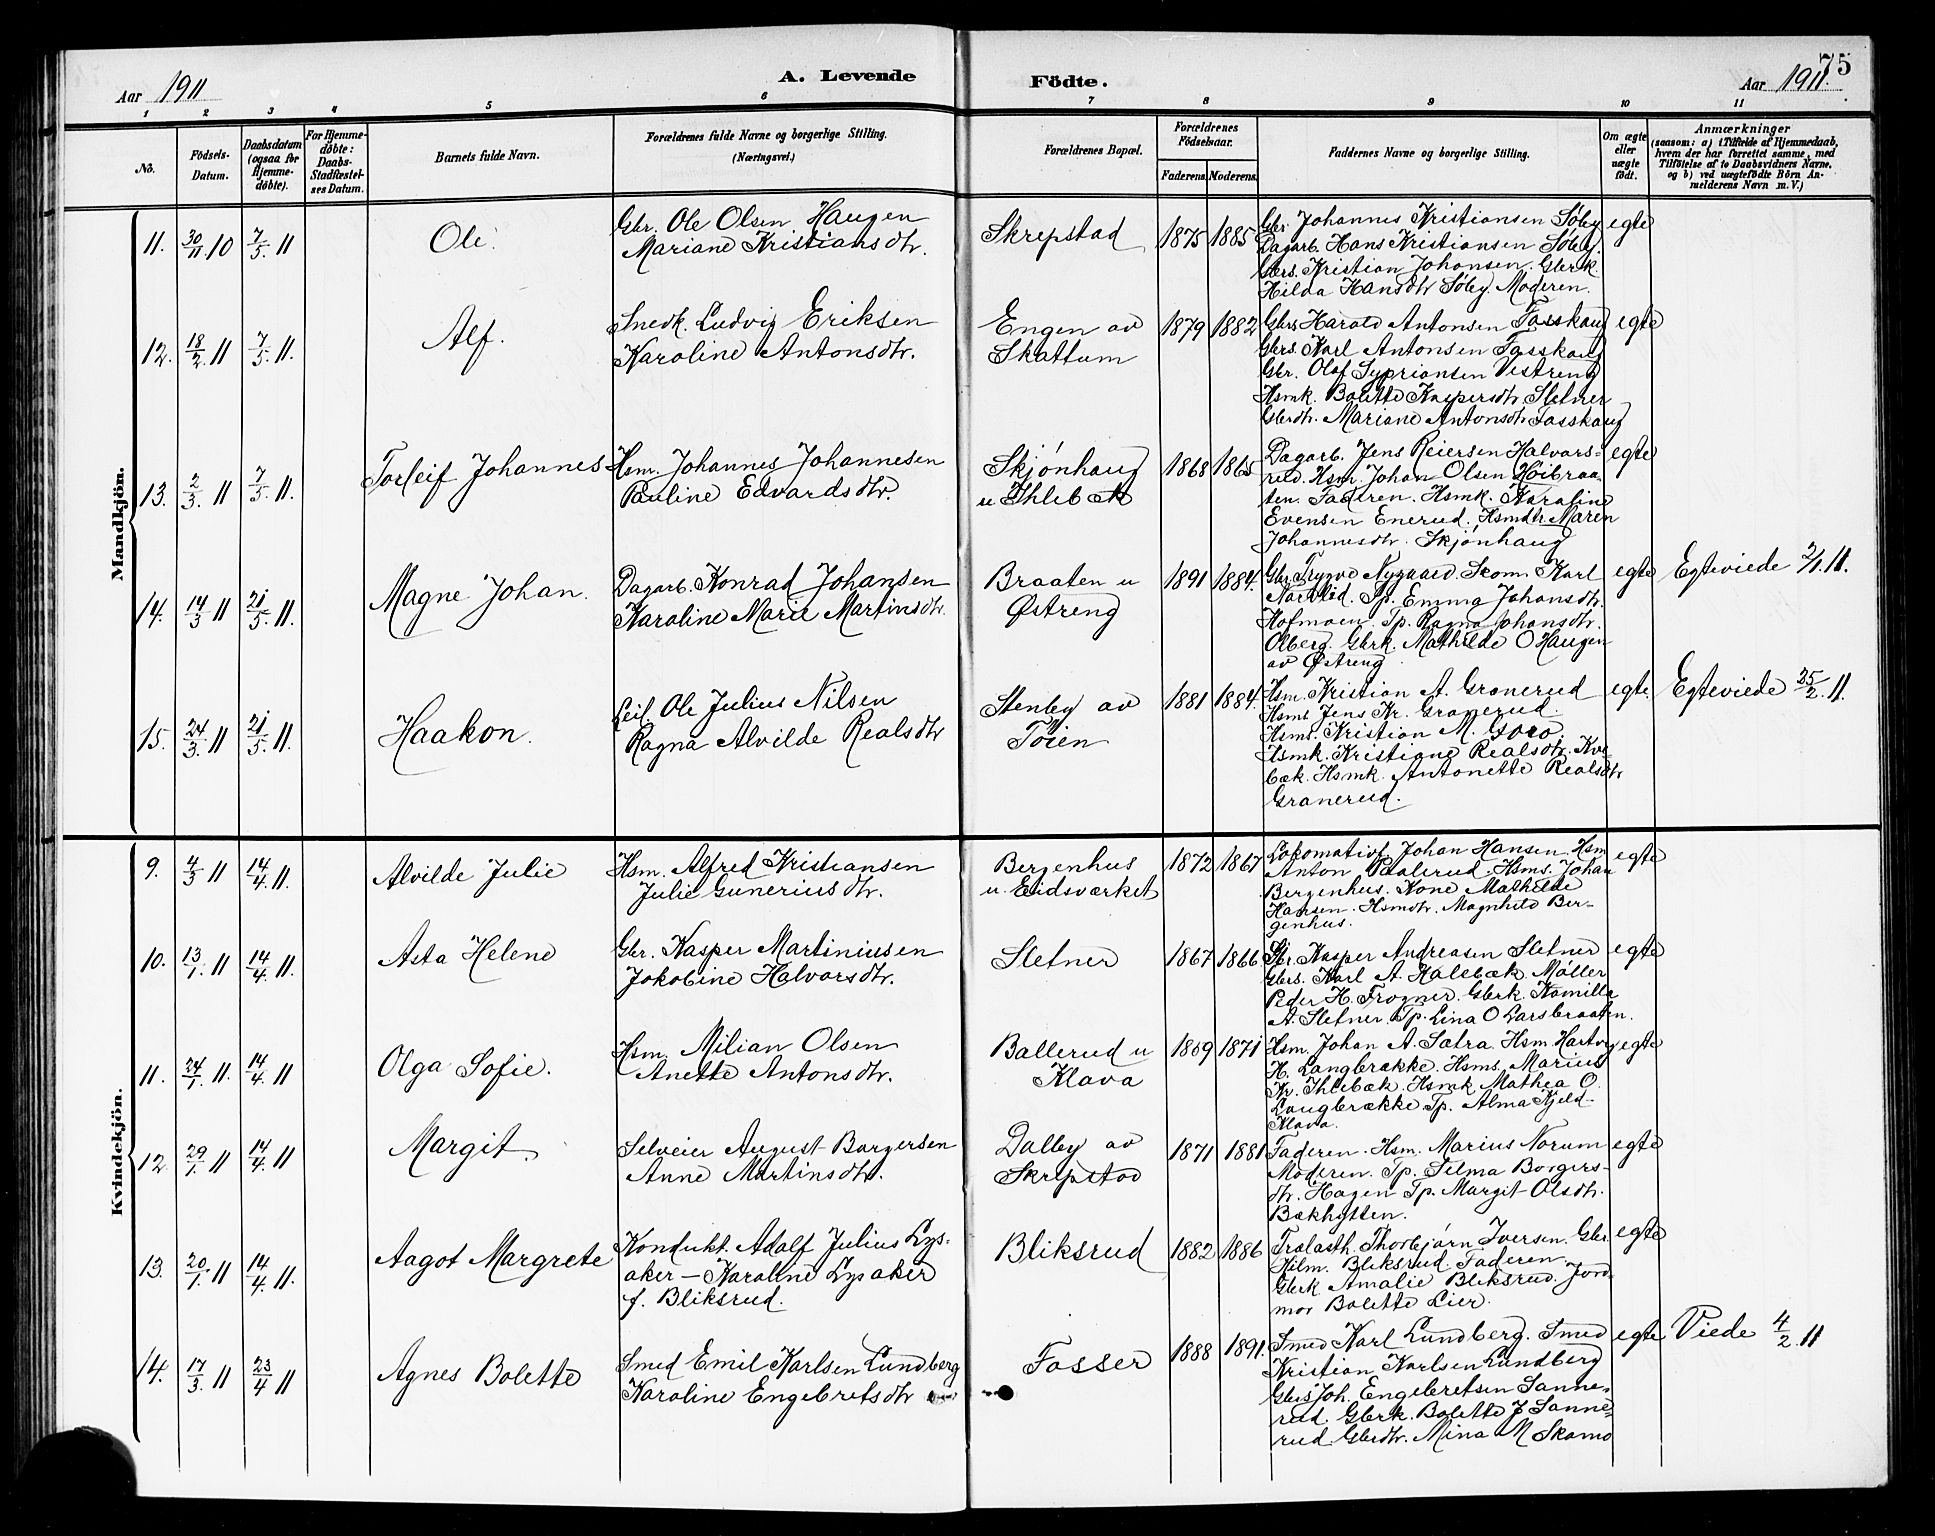 75
Aar 1911 A. Levende Födte. Aar 1911.
1 2 3 4 5 6 7 8 9 10 11
No.
Födsels-
Datum.
Daabsdatum
(ogsaa for
Hjemme-
döbte).
For Hjemme-
döbte:
Daabs-
Stadfæstel-
ses Datum.
Barnets fulde Navn.
Forældrenes fulde Navne og borgerlige Stilling.
(Næringsvei.)
Forældrenes Bopæl.
Forældrenes
Födselsaar.
Faderens. Moderens.
Faddernes Navne og borgerlige Stilling.
Om ægte
eller
uægte
født.
Anmærkninger
(saasom: a) i Tilfælde af Hjemmedaab,
hvem der har forrettet samme, med
Tilföielse af to Daabsvidners Navne,
og b) ved uægtefödte Börn An-
melderens Navn m. V.)
Mandkjön.
11. 30/11 10 7/5 11 Ole.
Gbr. Ole Olsen Haugen
Mariane Kristiansdtr.
Skrepstad 1875 1885
Gbr. Johannes Kristiansen Søby
Dagarb. Hans Kristiansen Søby.
Gbrs. Kristian Johansen. Gbrk.
Hilda Hansdtr Søby. Moderen.
egte
12. 18/2 11 7/5 11. Alf.
Snedk. Ludvig Eriksen
Karoline Antonsdtr.
Engen av
Skattum
1879 1882
Gbrs Harald Antonsen Fosskaug
Gbrs. Karl Antonsen Fosskaug
Gbr. Olaf Syprionsen Vestreng
Hsmk. Bolette Kaspersdtr. Sletner
Gbrdtr. Mariane Antonsdtr Fosskaug
egte
13. 2/3 11 7/5 11. Torleif Johannes
Hsm. Johannes Johannesen
Pauline Edvardsdtr.
Skjønhaug
u Ihlebæk
1868 1865
Dagarb. Jens Reiersen Halvors-
rud. Hsm. Johan Olsen Høibraa-
ten. Faderen. Hsmk. Karoline
Evensen Enerud. Hsmdtr Maren
Johannesdtr. Skjønhaug
egte
14. 14/3 11 21/5 11. Magne Johan.
Dagarb. Konrad Johansen
Karoline Marie Martinsdtr.
Braaten u
Østreng
1891 1884.
Gbr. Trygve Nygaard Skom. Karl
Tp. Emma Johansdtr.
Hofmoen. Tp. Ragna Johansdtr.
Olberg. Gbrk. Mathilde O Haugen
av Østreng
egte Egteviede 2/1. 11.
15. 24/3. 11 21/5 11. Haakon.
Leil. Ole Julius Nilsen
Ragna Alvilde Realsdtr
Stenby av
Tøien
1881 1884.
Hsm. Kristian A. Gronerud
Hsms Jens Kr. Gronerud.
Hsms. Kristian M.
Hsmk. Kristiane Realsdtr. Kve-
bæk. Hsmk. Antonette Realsdtr
Gronerud.
egte. Egteviede 25/2. 11.
Kvindekjön.
9. 4/3 11 14/4. 11. Alvilde Julie
Hsm. Alfred Kristiansen
Julie Gunerius dtr.
Bergenhus
u. Eidsværket
1872 1867
Lokomativf. Johan Hansen. Hsm
Anton Paalerud. Hsms. Johan
Bergenhus. Kone Mathilde
Hansen. Hsmdtr. Magnhild Ber-
genhus.
egte
10. 13/1. 11 14/4. 11. Asta Helene
Gbr. Kasper Martiniussen
Jokobine Halvorsdtr.
Sletner 1867 1866
Gbr. Kasper Andreasen Sletner
Gbrs. Karl A. Holebæk. Møller
Peder H. Frogner. Gbrk. Kamilla
A. Sletner. Tp. Lina O Larsbraaten.
egte
11. 24/1. 11. 14/4. 11 Olga Sofie.
Hsm. Milian Olsen
Anette Antonsdtr.
Ballerud u
Klava
1869 1871
Hsm. Johan A. Sætra. Hsm Hartvig
H. Langbrække. Hsms. Marius
Kr. Ihlebæk. Hsmk Mathea O.
Langbrække Tp. Alma Kjeld-
Klava.
egte
12. 29/1. 11 14/4. 11 Margit.
Selveier August Borgersen
Anne Martinsdtr.
Dalby av
Skrepstad
1871 1881
Faderen. Hsm. Marius Norum
Moderen. Tp. Selma Borgers-
dtr. Hagen Tp. Margit Olsdtr.
Bækhytten.
egte
13. 20/1. 11 14/4. 11. Aagot Margrete
Kondukt. Adolf Julius Lys-
aker — Karoline Lysaker
f. Bliksrud.
Bliksrud 1882 1886
Thorbjørn Iversen. Gbr.
Hilm. Bliksrud Faderen.
Gbrk Amalie Bliksrud. Jord-
mor Bolette Lier.
egte
14. 17/3. 11 23/4 11 Agnes Bolette
Smed Emil Karlsen Lundberg
Karoline Engebretsdtr
Fosser 1888 1891.
Smed Karl Lundberg. Smed
Kristian Karlsen Lundberg
Gbrs Joh. Engebretsen Sanne-
rud. Gbrk. Bolette J Sanne-
rud. Gbrdtr. Mina M Skamo
egte Viede 4/2. 11